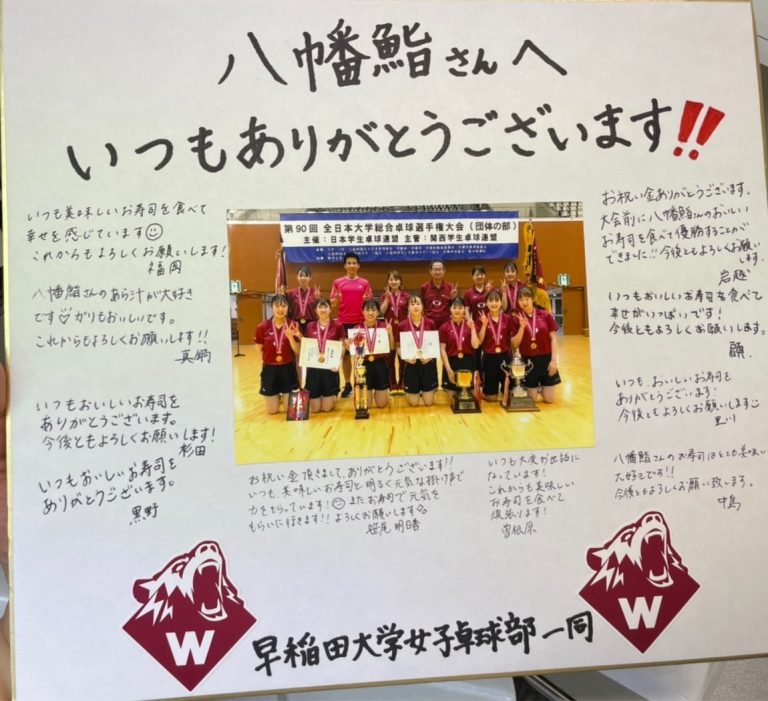 八幡鮨さんへ
いつもありがとうございます!!
いつも美味しいお寿司を食べて
幸せを感じています
これからもよろしくお願いします!
福岡
八幡鮨さんのあら汁が大好き
です♡ガリもおいしいです。
これからもよろしくお願いします!!
真鍋
いつもおいしいお寿司を
ありがとうございます。
今後ともよろしくお願いします!
杉田
いつもおいしいお寿司を
ありがとうございます。
黒野
第90回 全日本大学総合卓球選手権大会(団体の部)
主催:日本学生卓球連盟 主管:関西学生卓球連盟
お祝い金頂きまして、ありがとうございます!!
いつも美味しいお寿司と明るく元気な掛け声で
力をもらっています!またお寿司で元気を
もらいに行きます!!よろしくお願いします
笹尾明日香
いつも大変お世話に
なっています!
これからも美味しい
お寿司を食べて
頑張ります!
曽根原
お祝い金ありがとうございます。
大会前に八幡鮨さんのおいしい
お寿司を食べて優勝することが
できました!!今後ともよろしくお願い
します。
岩越
いつもおいしいお寿司を食べて
幸せがいっぱいです!
今後ともよろしくお願いします。
いつも、おいしいお寿司を
ありがとうございます!
今後ともよろしくお願いします
八幡鮨さんのお寿司はとても美味しく
大好きです!!
今後ともよろしくお願い致します。
中島
W
W
早稲田大学女子卓球部一同